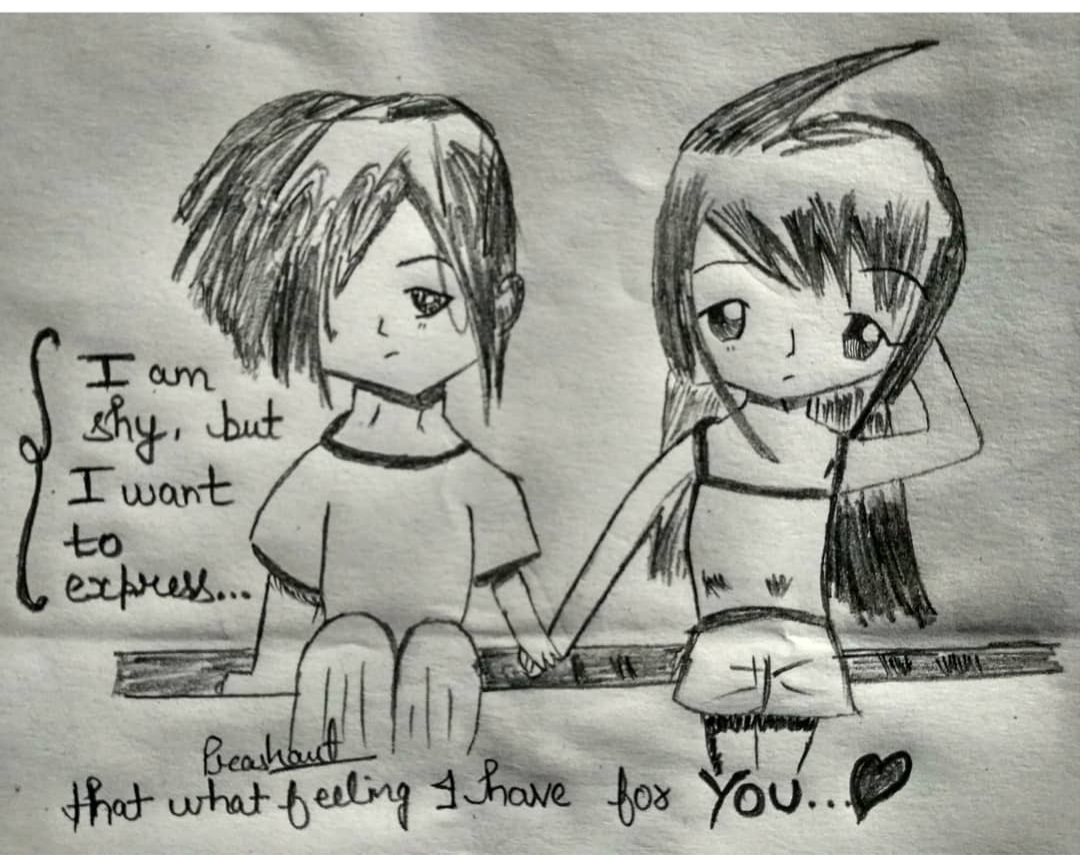 I am
shy, but
I want
to
express...
that what feeling I have for YOU...